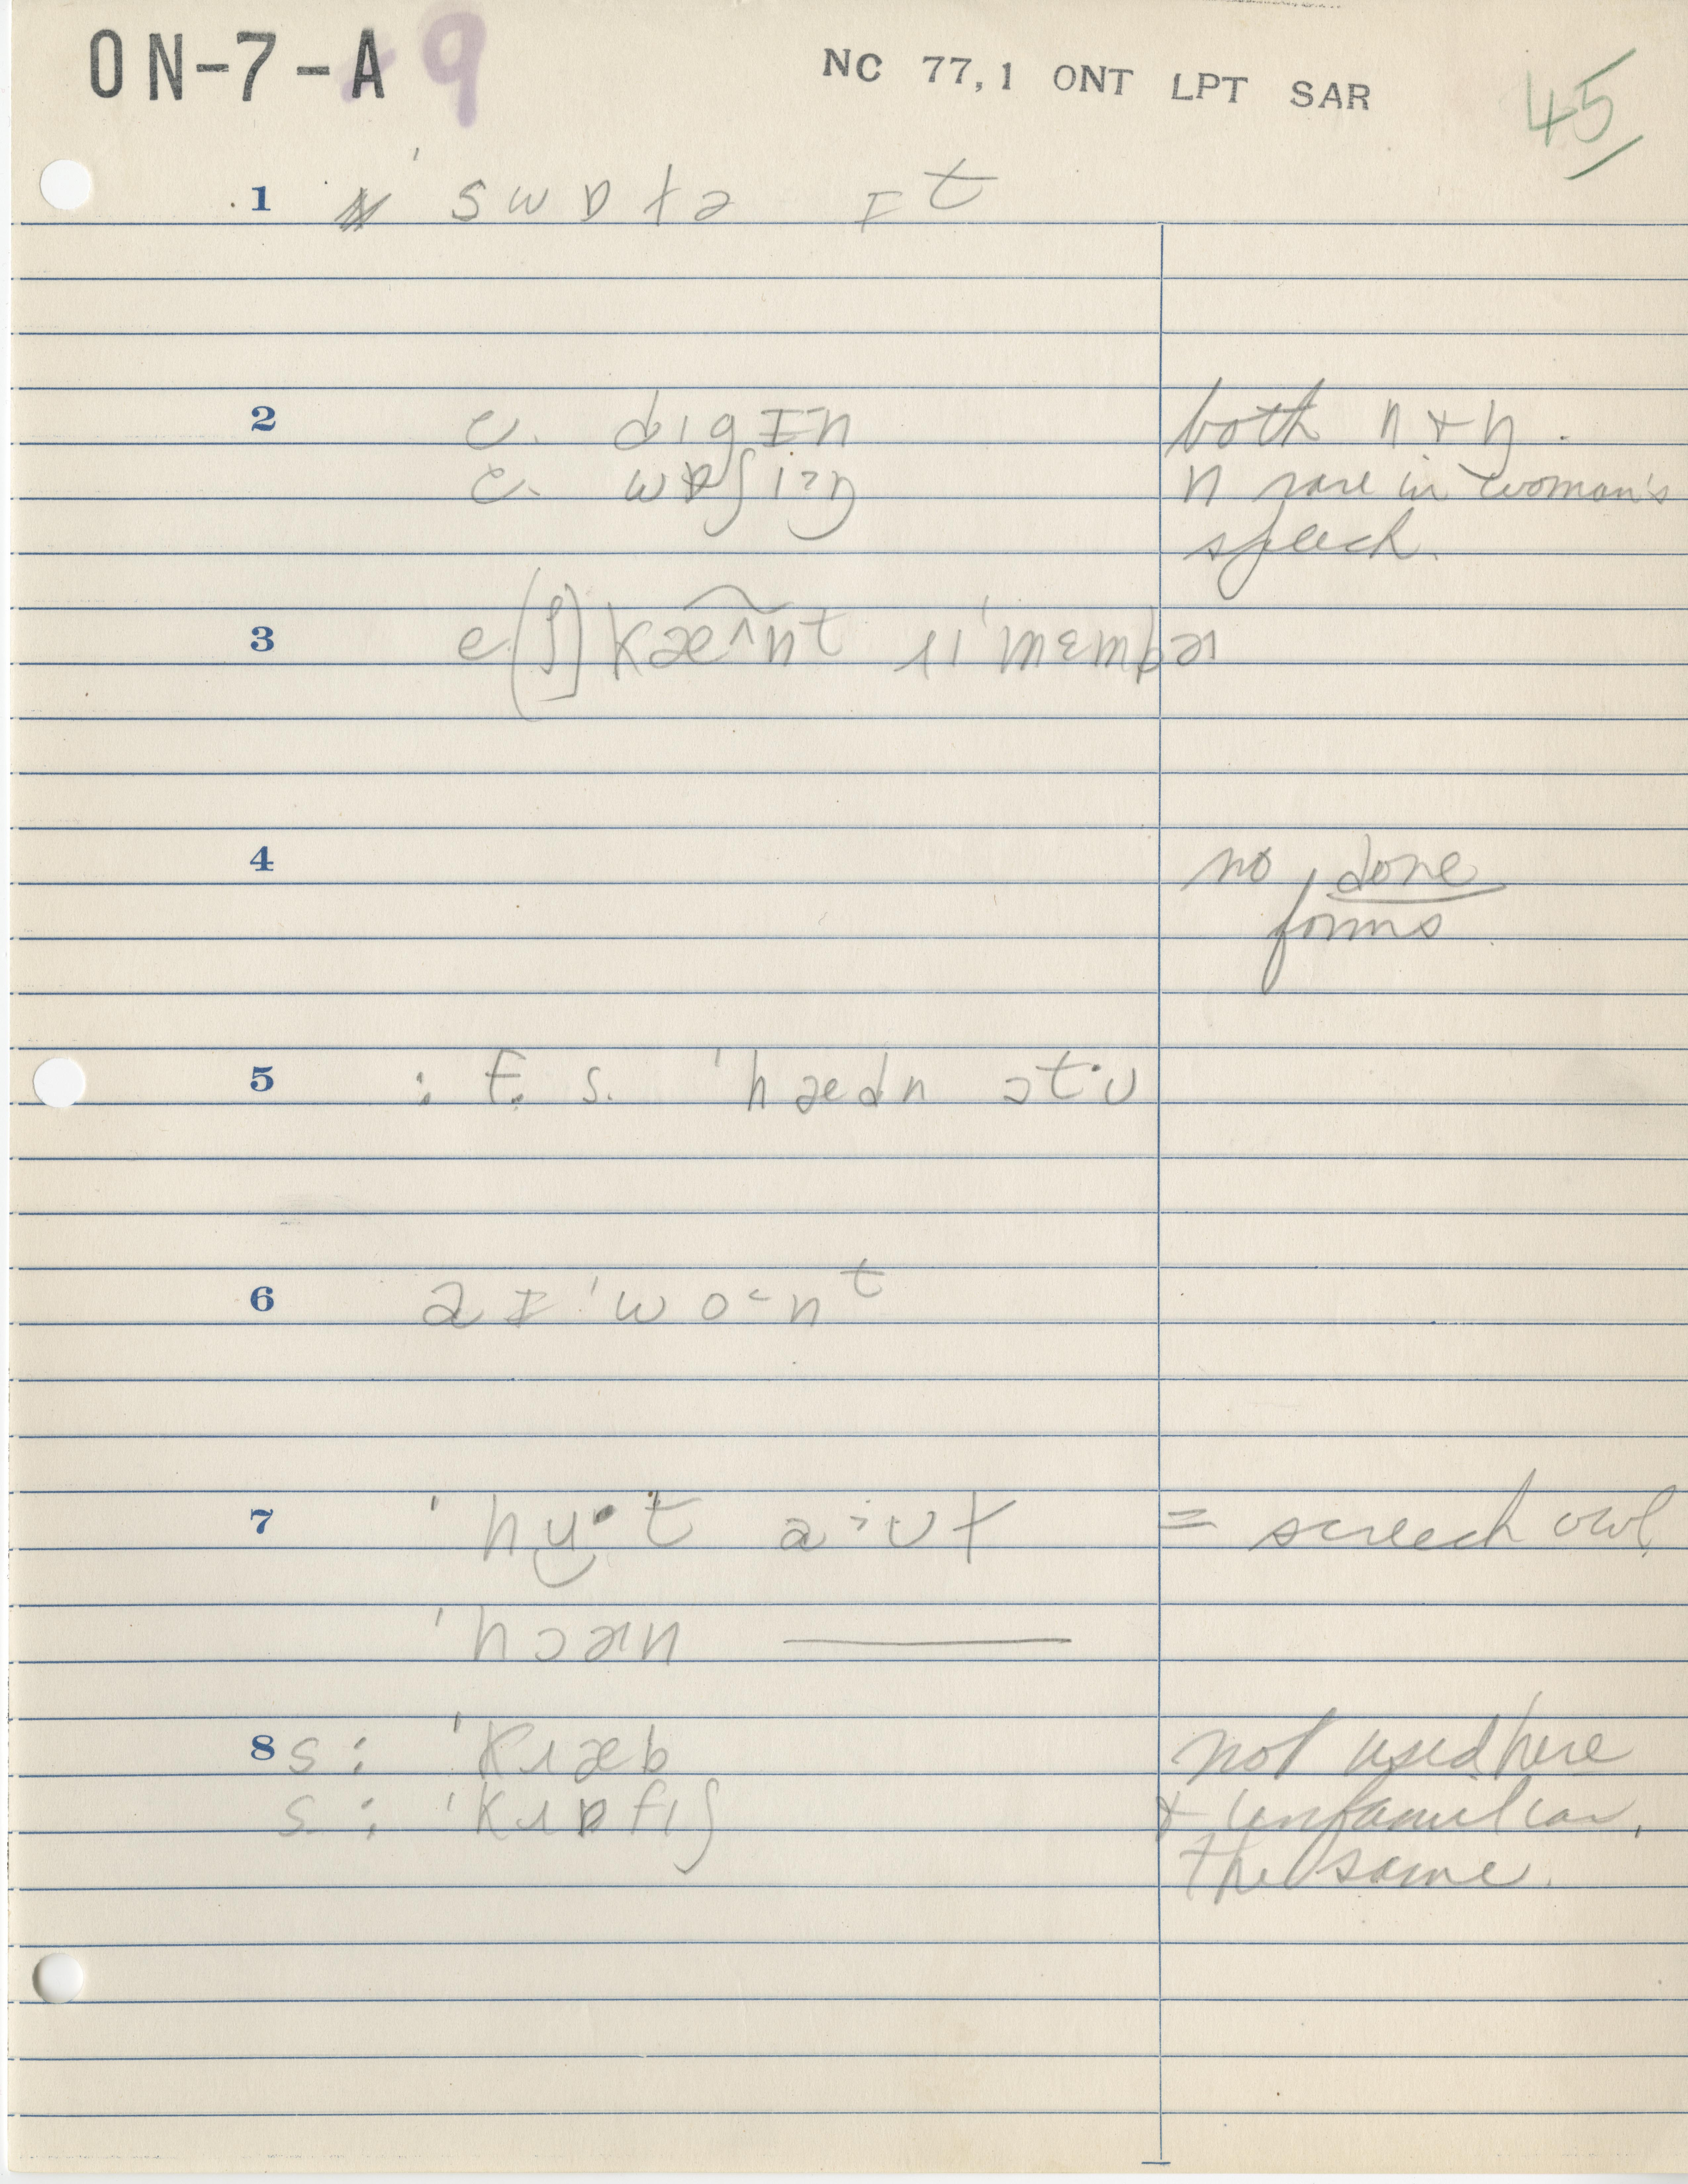 ON-7-A 9 NC 77,1 ONT LPT SAR 45
1 ˈswɒɫə ɪt
2 c. dɪgɪn both n + ŋ.
c. wɒʃɪŋ n rare in woman's
speech.
3 rɪˈmɛmbəɹ
4 no done
forms
5 : f. s. ˈhædn ɔt·ʊ
6 aɪ ˈwo˂nᵗ
7 ˈhu̯·t a˃ʊɫ = screech owl
ˈhɔəɹn ———
8 s: ˈkɹæb not used here
s: ˈkɹɒfɪʃ + unfamiliar,
the same.